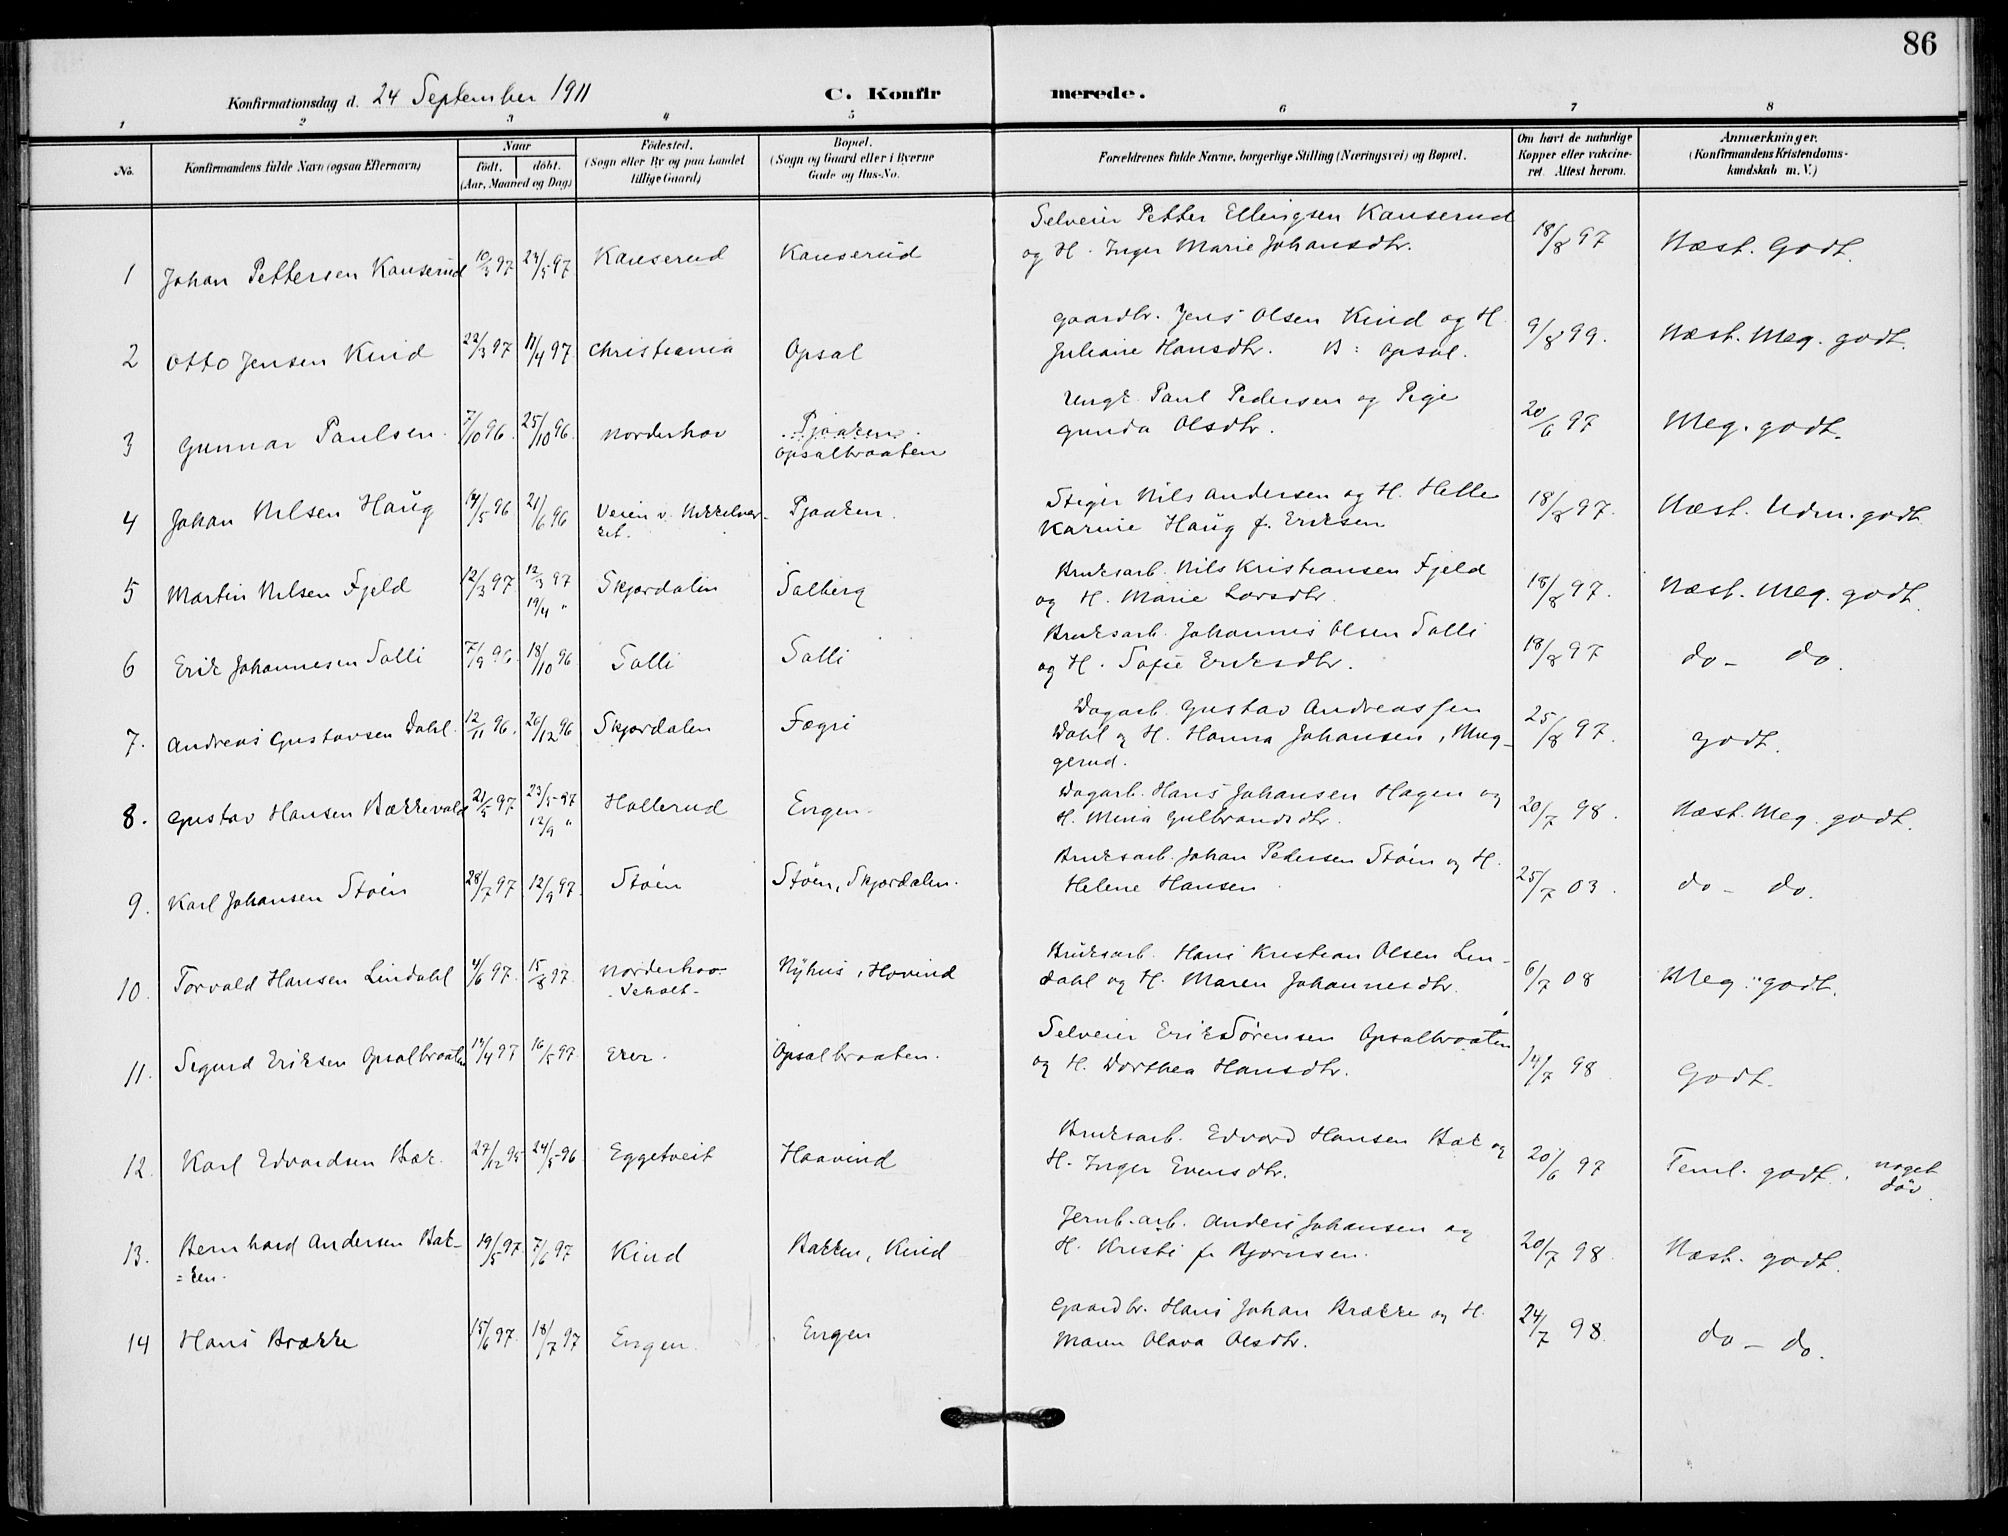 86
Konfirmationsdag d. 24 September 1911
C. Konfirmerede.
1 2 3 4 5 6 7 8
No. Konfirmandens fulde Navn (ogsaa Efternavn) Naar født. døbt. (Aar, Maaned og Dag) Födested. (Sogn eller By og paa Landet tillige Gaard) Bopæl. (Sogn og Gaard eller i Byerne Gade og Hus-No. Forældrenes fulde Navne, borgerlige Stilling (Næringsvei) og Bopæl. Om havt de naturlige Kopper eller vakcineret. Attest herom. Anmærkninger. (Konfirmandens Kristendomskundskab m. V.)
1 Johan Pettersen Kanserud 10/3 97 24/5 97 Kanserud Kanserud Selveier Petter Ellingsen Kanserud 18/8 97 Næst. Godt.
og H. Inger Marie Johansdtr.
2 Otto Jensen Kind 22/3 97 11/4 97 Christiania Opsal gaardbr. Jens Olsen Kind og H. 9/8 99. Næst. Meg. godt.
Juliane Hansdtr. B: Opsal.
3 Gunnar Paulsen. 7/10 96. 25/10 96. Norderhov Pjaaken. Ungk. Paul Pedersen og Pige 20/6 97 Meg. godt.
Opsalbraaten Gunda Olsdtr.
4 Johan Nilsen Haug 14/5 96 21/6 96 Veien v. Nikkelver- Pjaaken. Stiger Nils Andersen og H. Helle 18/8 97. Næst. Udm. godt
ket. Karine Haug f. Eriksen
5 Martin Nilsen Fjeld 12/3 97 12/3 97 Skjørdalen Solberg Bruksarb. Nils Kristiansen Fjeld 18/8 97. Næst. Meg. godt.
19/4 " og H. Marie Larsdtr.
6 Erik Johannesen Solli 7/9 96. 18/10 96 Solli Solli Bruksarb. Johannes Olsen Solli 18/8 97 do – do.
og H. Sofie Eriksdtr.
7. Andreas Gustavsen Dahl. 12/11 96. 26/12 96 Skjørdalen Fægri Dagarb. Gustav Andreassen 25/8 97. godt.
Dahl og H. Hanna Johansen, Mug-
gerud.
8. Gustav Hansen Bækkevold 21/5 97 23/5 - 97 Hollerud Engen. Dagarb. Hans Johansen Hagen og 20/7 98. Næst. Meg. godt.
12/9 " H. Mina Gulbrandsdtr.
9. Karl Johansen Støen 28/7 97 12/9 97. Støen Støen, Skjørdalen. Bruksarb. Johan Pedersen Støen og H. 25/7 03. do – do.
Helene Hansen
10. Torvald Hansen Lindahl 4/6 97. 15/8 97. Norderhov- Nyhus, Hovind Bruksarb. Hans Kristian Olsen Lin- 6/7 08 Meg. godt.
dahl og H. Maren Johannesdtr.
11. Sigurd Eriksen Opsalbraaten 14/4 97 16/5 97. Eker. Opsalbraaten. Selveier Erik Sørensen Opsalbraaten 14/7 98 Godt.
og H. Dorthea Hansdtr.
12. Karl Edvardsen Bæk. 27/12 95 24/5 - 96 Eggetveit Haavind Bruksarb. Edvard Hansen Bæk og 20/6 97 Teml. godt. noget
H. Inger Evensdtr. døv.
13. Bernhard Andersen Bak- 19/5 97. 7/6 97 Kind Bakken, Kind Jernb. arb. Anders Johansen og 20/7 98. Næst. godt.
=ken. H. Kristi f. Bjørnsen.
14 Hans Brække 15/6 97. 18/7 97 Engen. Engen Gaardbr. Hans Johan Brække og H. 24/7 98. do – do.
Maren Olava Olsdtr.